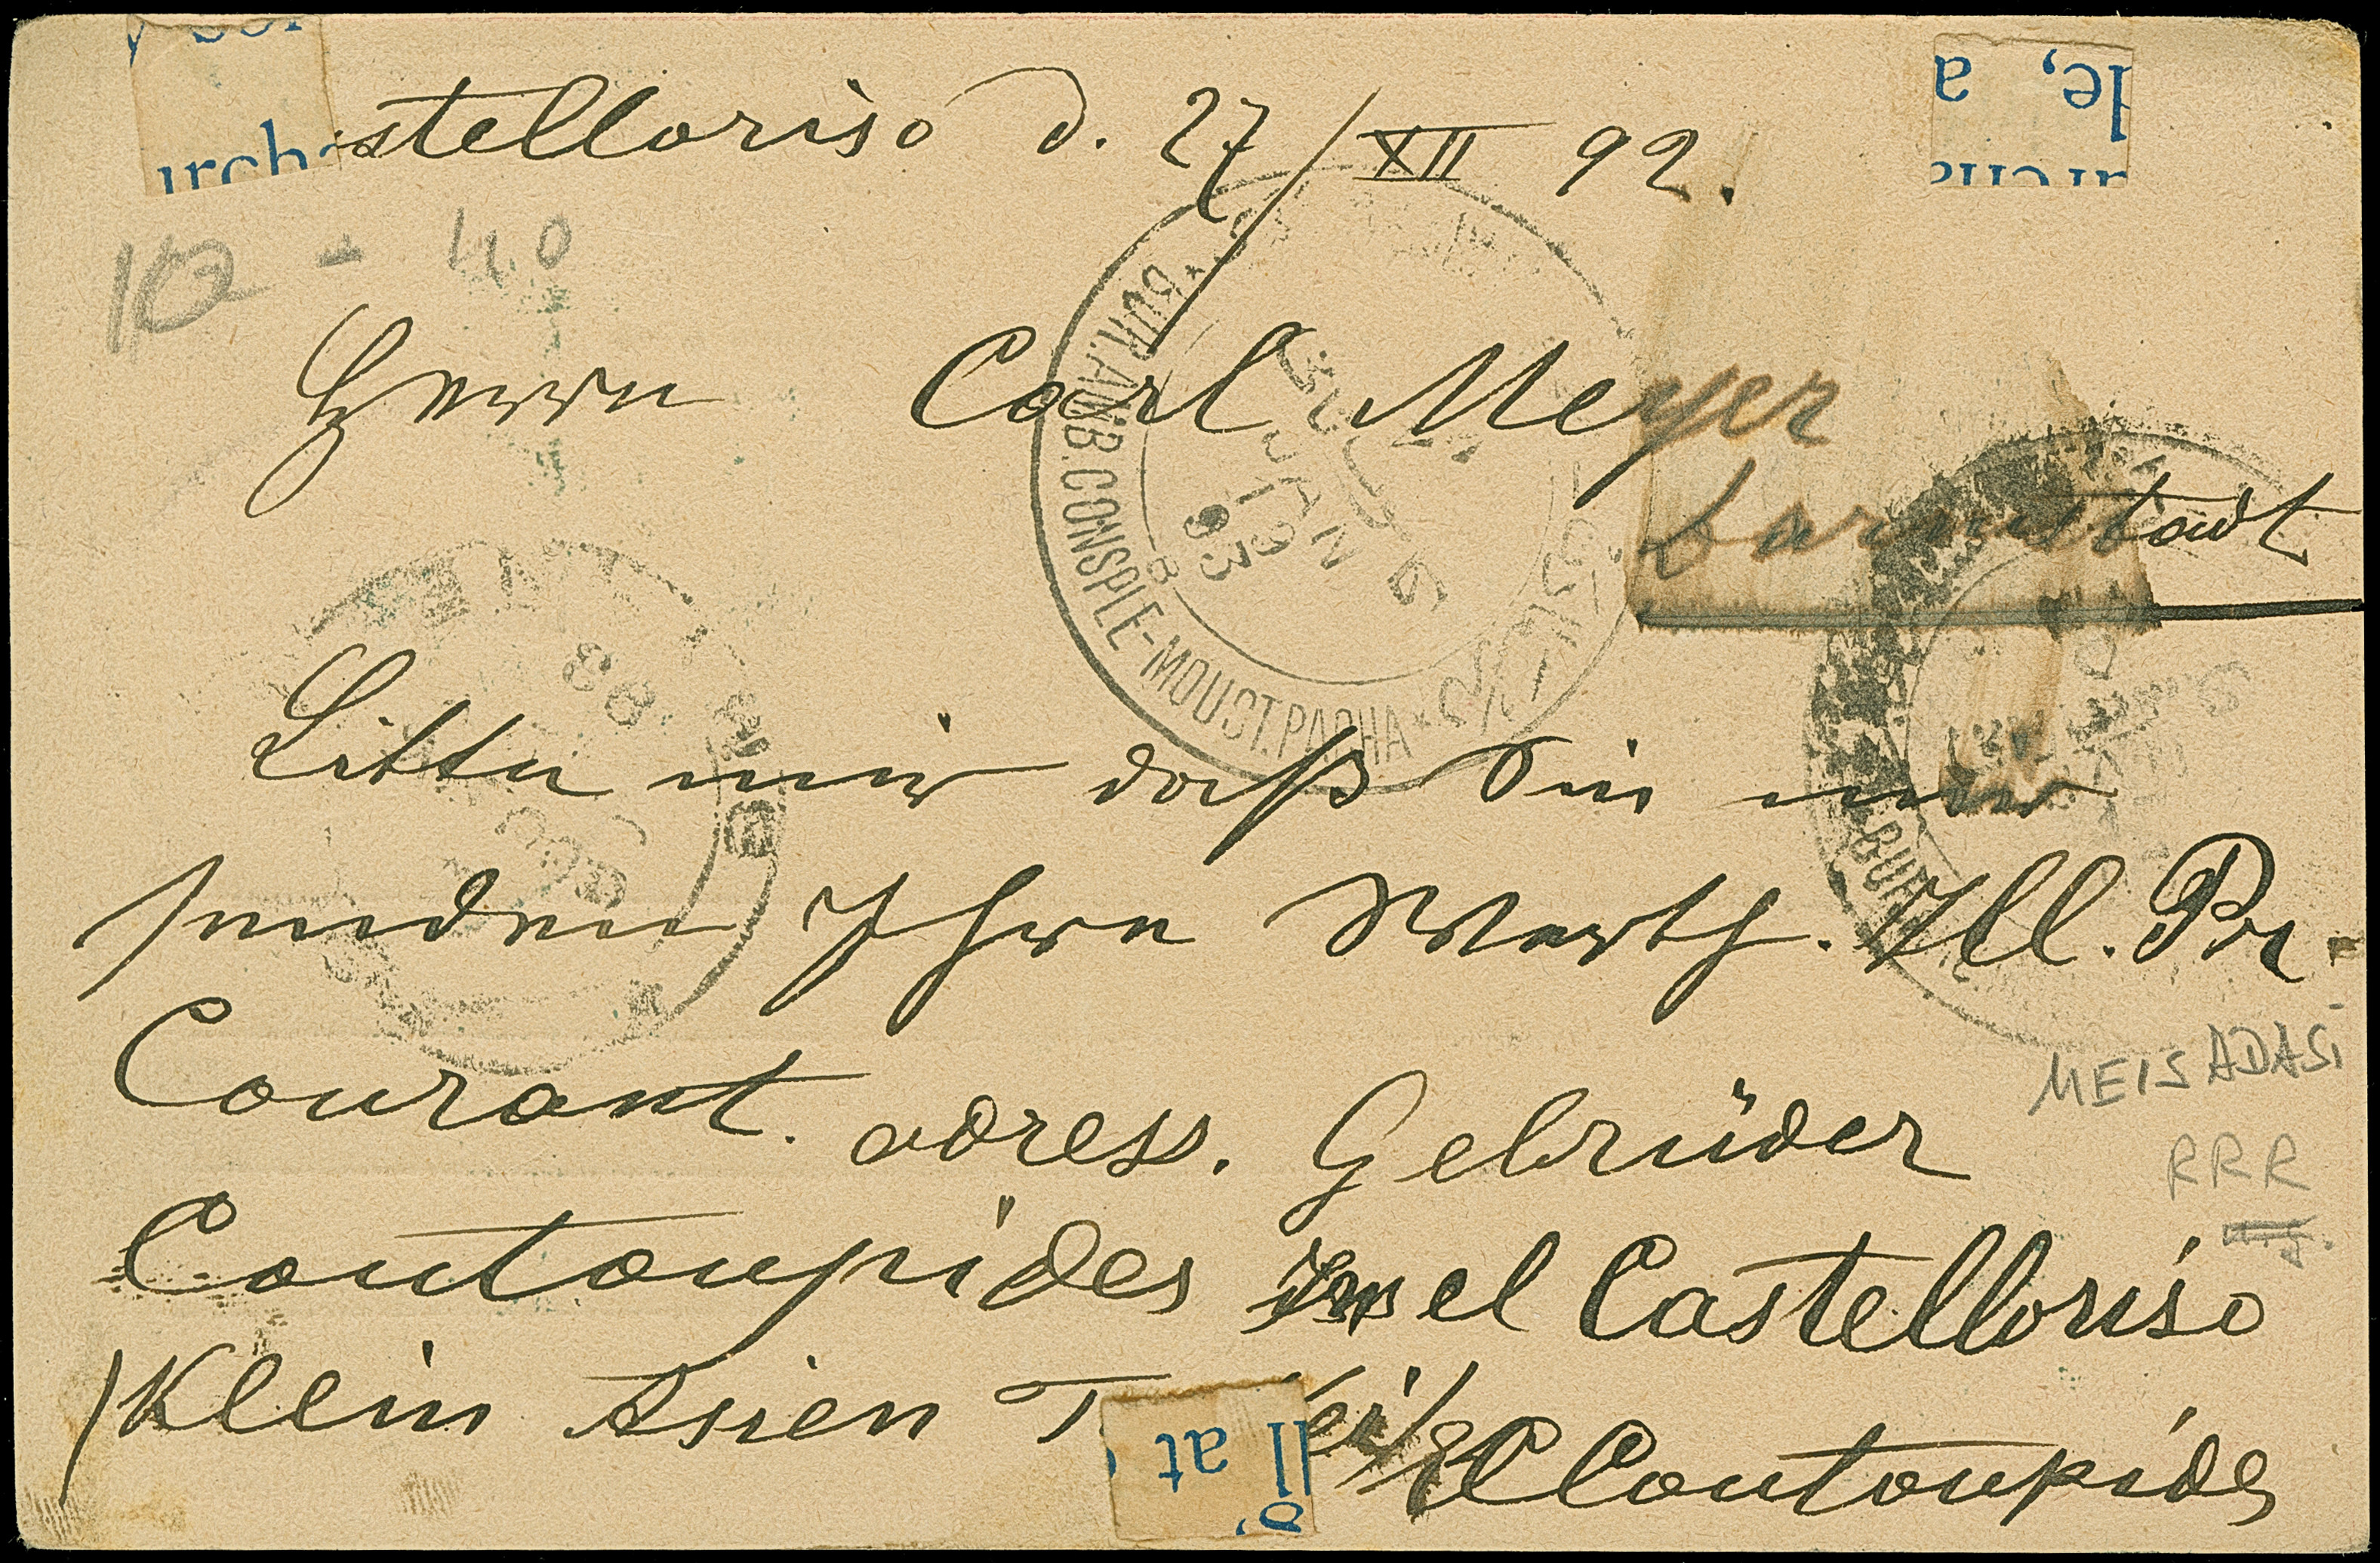 stelloriso d. 27/XII 92.
10 - 40
Herrn Carl Meyer
Darmstadt
Bitte mir daß Sie mir
senden Ihre Werth. Ill. Pr.
Courant. adress. Gebrüder
Coutoupides Insel Castelloriso
(Klein Asien T
Coutoupides
MEIS ADASI
RRR
BUR. AMB. CONSPLE-MOUST. PACHA
JAN
93
BUR
le, a
ll at